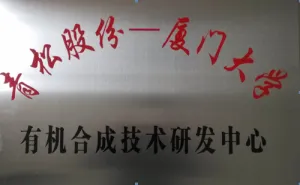 青松股份—厦门大学
有机合成技术研发中心